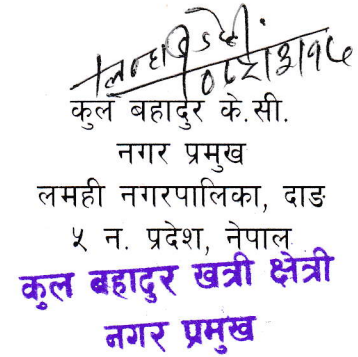 कुल बहादुर के.सी.
नगर प्रमुख
लमही नगरपालिका, दाङ
५ न. प्रदेश, नेपाल
कुल बहादुर खत्री क्षेत्री
नगर प्रमुख